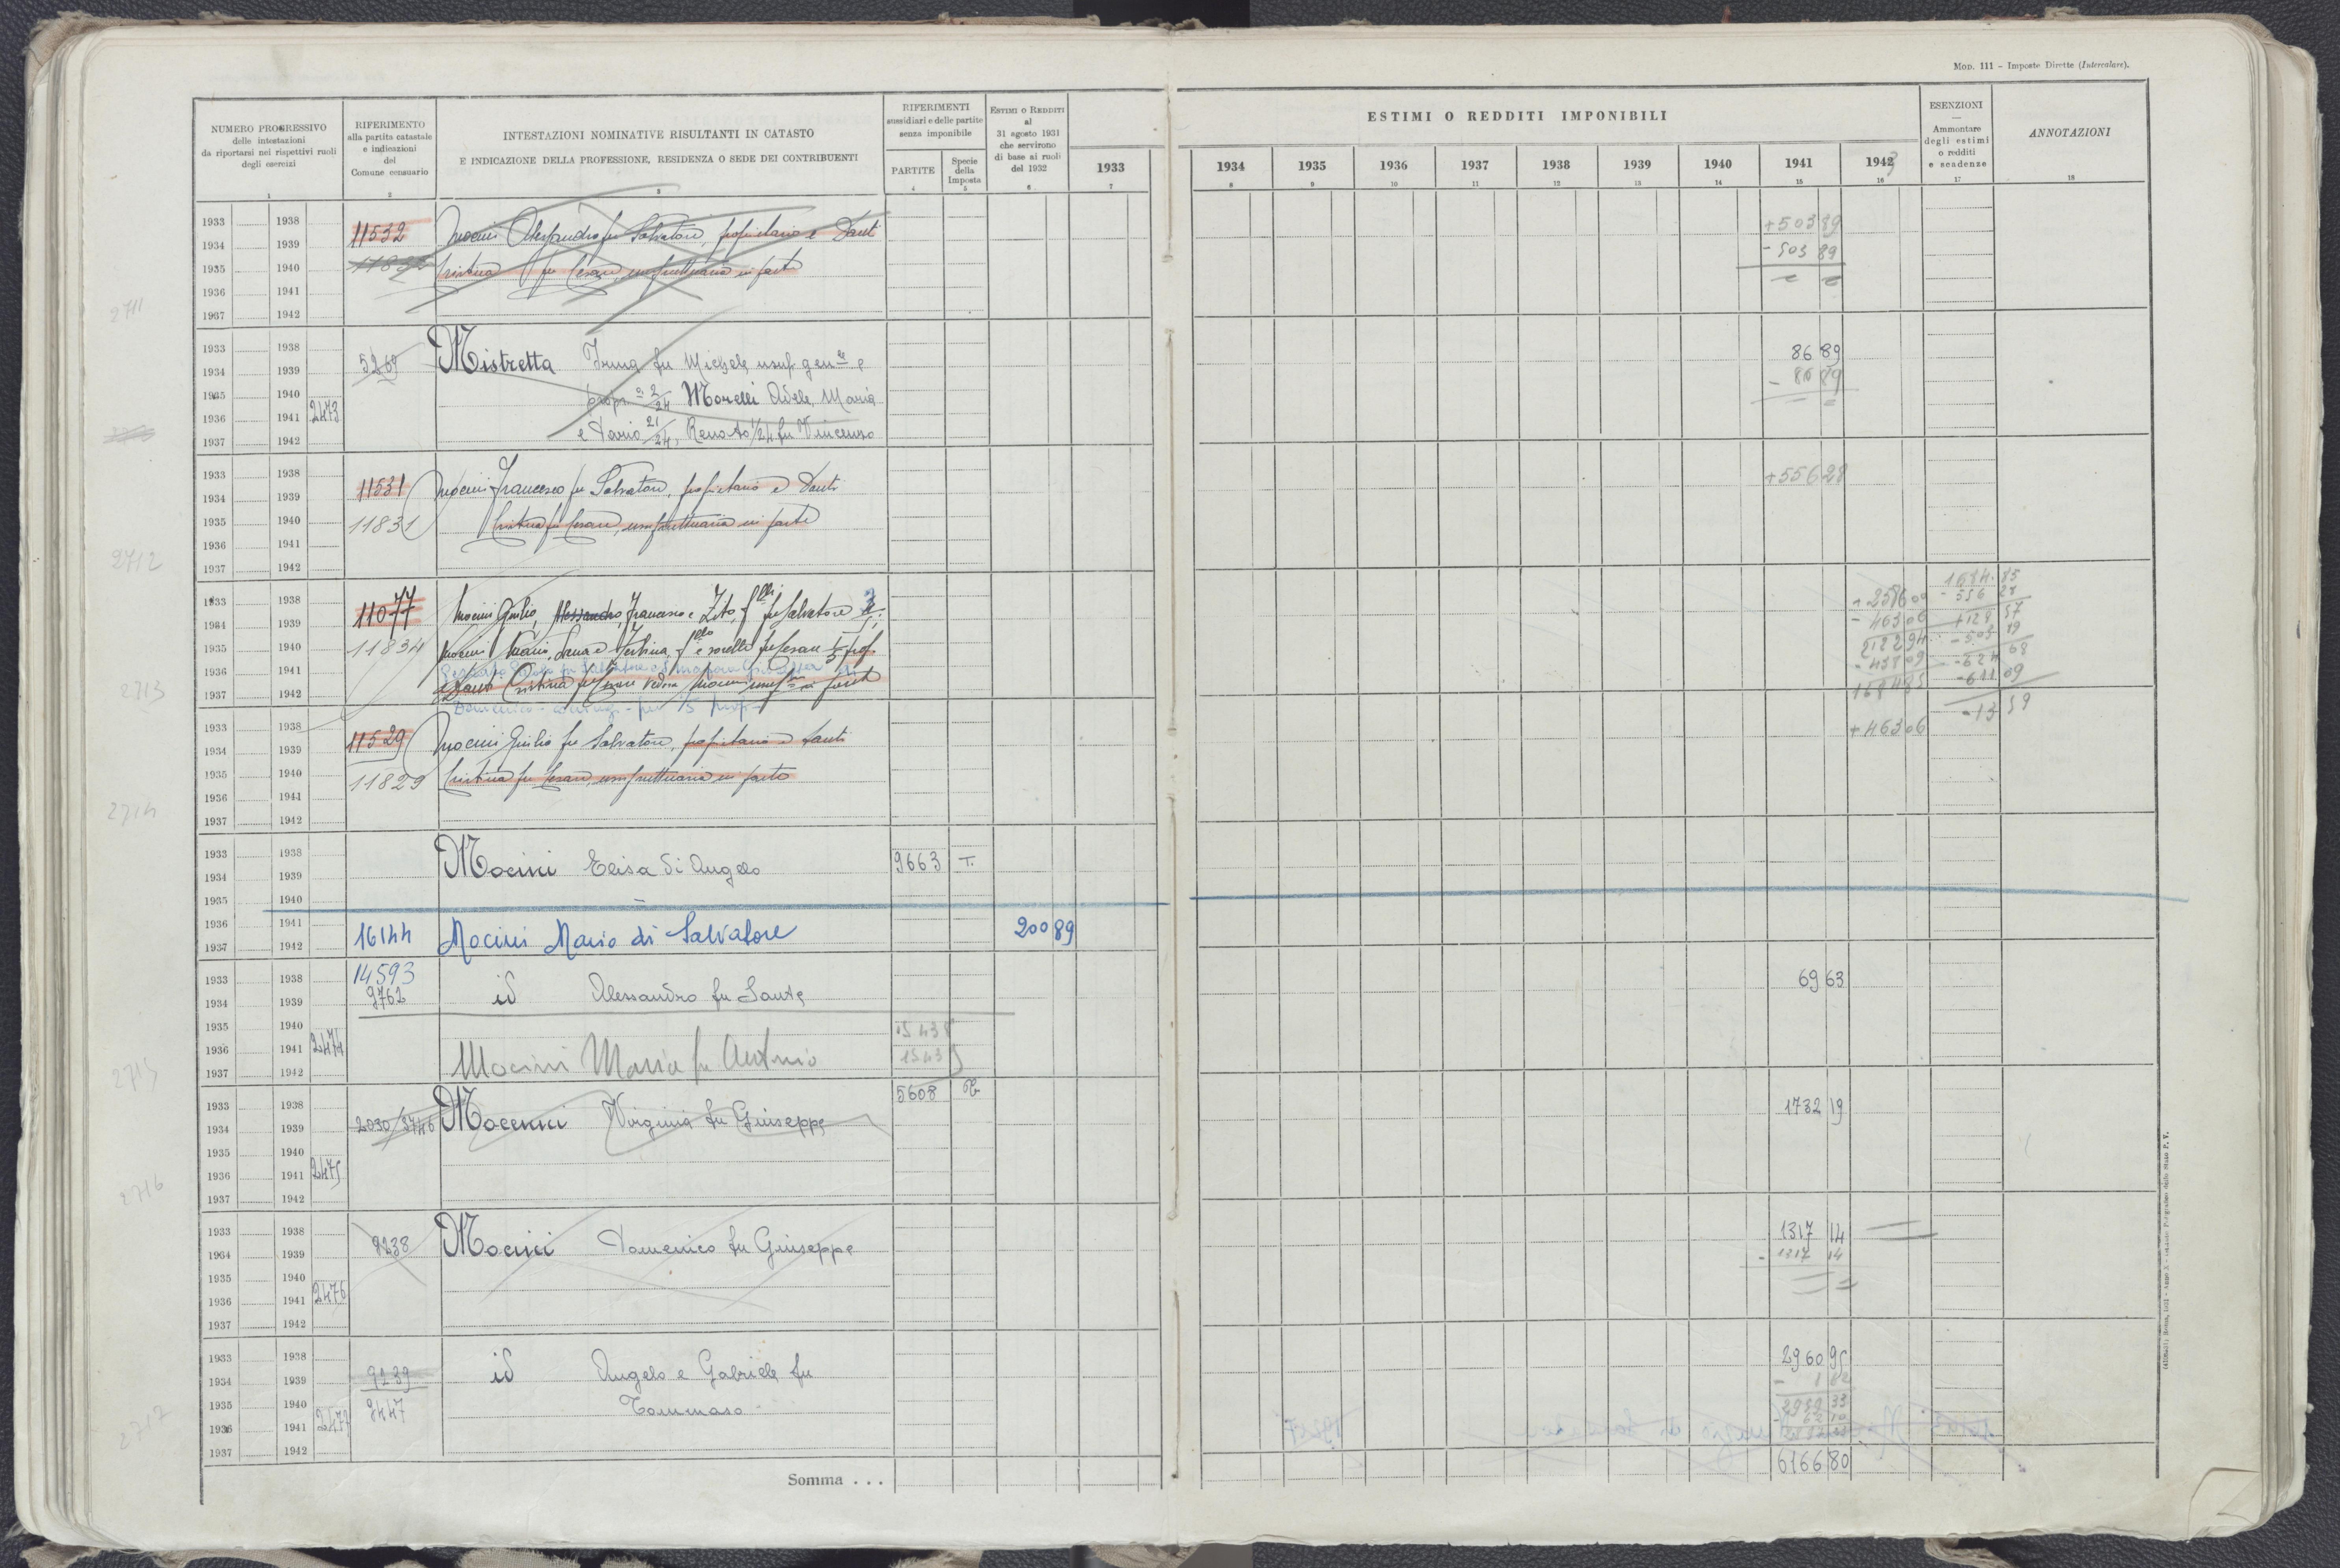 MOD. 111 – Imposte Dirette (Intercalare).
NUMERO PROGRESSIVO
delle intestazioni
da riportarsi nei rispettivi ruoli
degli esercizi
1
RIFERIMENTO
alla partita catastale
e indicazioni
del
Comune censuario
2
INTESTAZIONI NOMINATIVE RISULTANTI IN CATASTO
E INDICAZIONE DELLA PROFESSIONE, RESIDENZA O SEDE DEI CONTRIBUENTI
3
RIFERIMENTI
sussidiari e delle partite
senza imponibile
PARTITE
4
Specie
della
Imposta
5
ESTIMI O REDDITI
al
31 agosto 1931
che servirono
di base ai ruoli
del 1932
6
1933
7
ESTIMI O REDDITI IMPONIBILI
1934 1935 1936 1937 1938 1939 1940 1941 1943
8 9 10 11 12 13 14 15 16
ESENZIONI
—
Ammontare
degli estimi
o redditi
e scadenze
17
ANNOTAZIONI
18
1933 1938 11532 Mocini Alessandro fu Salvatore, proprietario e Santi +503 89
1934 1939 - 503 89
1935 1940 Cristina fu Cesare, usufruttuaria in parte
1936 1941
2711
1937 1942
1933 1938 Mistretta Irma fu Michele usuf. gen.le e 86 89
1934 1939 5269 - 86 89
1935 1940 propr. 2/24 Morelli Adele, Maria
1936 1941 2473 e Dario 21/24, Renato 1/24 fu Vincenzo
1937 1942
1933 1938 11531 Mocini Francesco fu Salvatore, proprietario e Santi +556 28
1934 1939
1935 1940 11831 Cristina fu Cesare, usufruttuaria in parte
1936 1941
2712
1937 1942
1933 1938 11077 Mocini Giulio, Alessandro, Francesco e Zito, f.lli fu Salvatore
1934 1939 - 463 06
1935 1940 11834 Mocini Mario, e sorelle fu Cesare
1936 1941
2713
1937 1942 Cristina fu Cesare in parte
1933 1938 11529 Mocini Giulio fu Salvatore, proprietario e Santi +463 06
1934 1939
1935 1940 11829 Cristina fu Cesare, usufruttuaria in parte
1936 1941
2714
1937 1942
1933 1938 Mocini Elisa di Angelo 9663 T.
1934 1939
1935 1940
1936 1941
1937 1942 16144 Mocini Mario di Salvatore 200 89
1933 1938 14593 69 63
1934 1939 9762 id Alessandro fu Sante
1935 1940 15438
1936 1941 2474 Mocini Maria fu Antonio
2715
1937 1942
1933 1938 5608 1732 19
1934 1939 2030/3746 Mocenni Virginia fu Giuseppe
1935 1940
1936 1941 2475
2716
1937 1942
1933 1938 1317 14
1934 1939 9238 Mocini Domenico fu Giuseppe - 1317 14
1935 1940
1936 1941 2476
1937 1942
1933 1938 2960 95
1934 1939 9239 id Angelo e Gabriele fu
1935 1940 9447 Tommaso
1936 1941 2477
2717
1937 1942
Somma . . . 6166 80